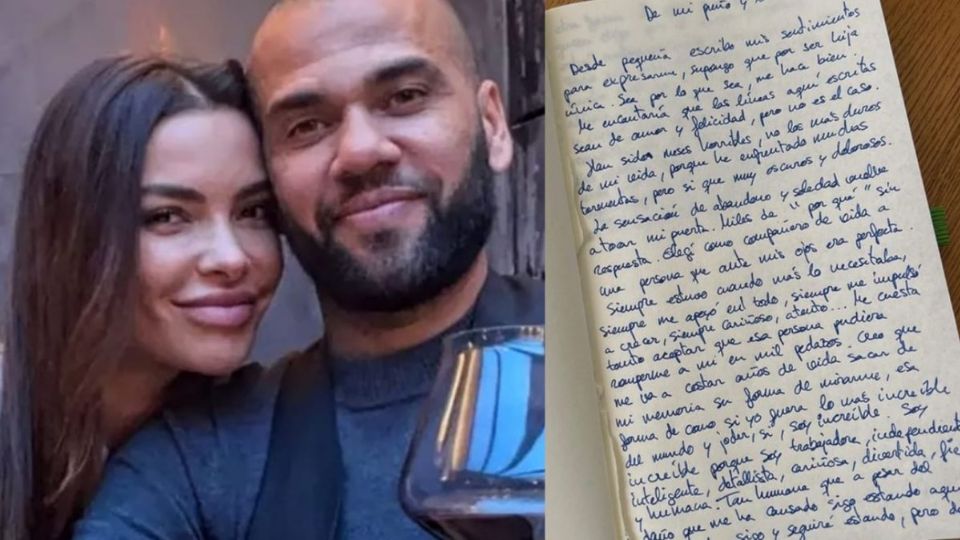 De mi puño y
Desde pequeña escribo mis sentimientos
para expresarme, supongo que por ser hija
única. Sea por lo que sea, me hace bien.
Me encantaría que las líneas aquí escritas
sean de amor y felicidad, pero no es el caso.
Han sido meses horribles, no los más duros
de mi vida, porque he enfrentado muchas
tormentas, pero si que muy oscuros y dolorosos.
La sensación de abandono y soledad vuelve
a tocar mi puerta. Miles de "por qué" sin
respuesta. Elegí como compañero de vida a
una persona que ante mis ojos era perfecta.
Siempre estuvo cuando más lo necesitaba,
siempre me apoyó en todo, siempre me impulsó
a crecer, siempre cariñoso, atento... Me cuesta
tanto aceptar que esa persona pudiera
romperme a mi en mil pedazos. Creo que
me va a costar años de vida sacar de
mi memoria su forma de mirarme, esa
forma de como si yo fuera lo mas increíble
del mundo y joder, si, soy increíble. Soy
increíble porque soy trabajadora, independiente
inteligente, detallista, cariñosa, divertida,
y humana. Tan humana que a pesar del
daño que me ha causado sigo estando aquí
sigo y seguiré estando, pero